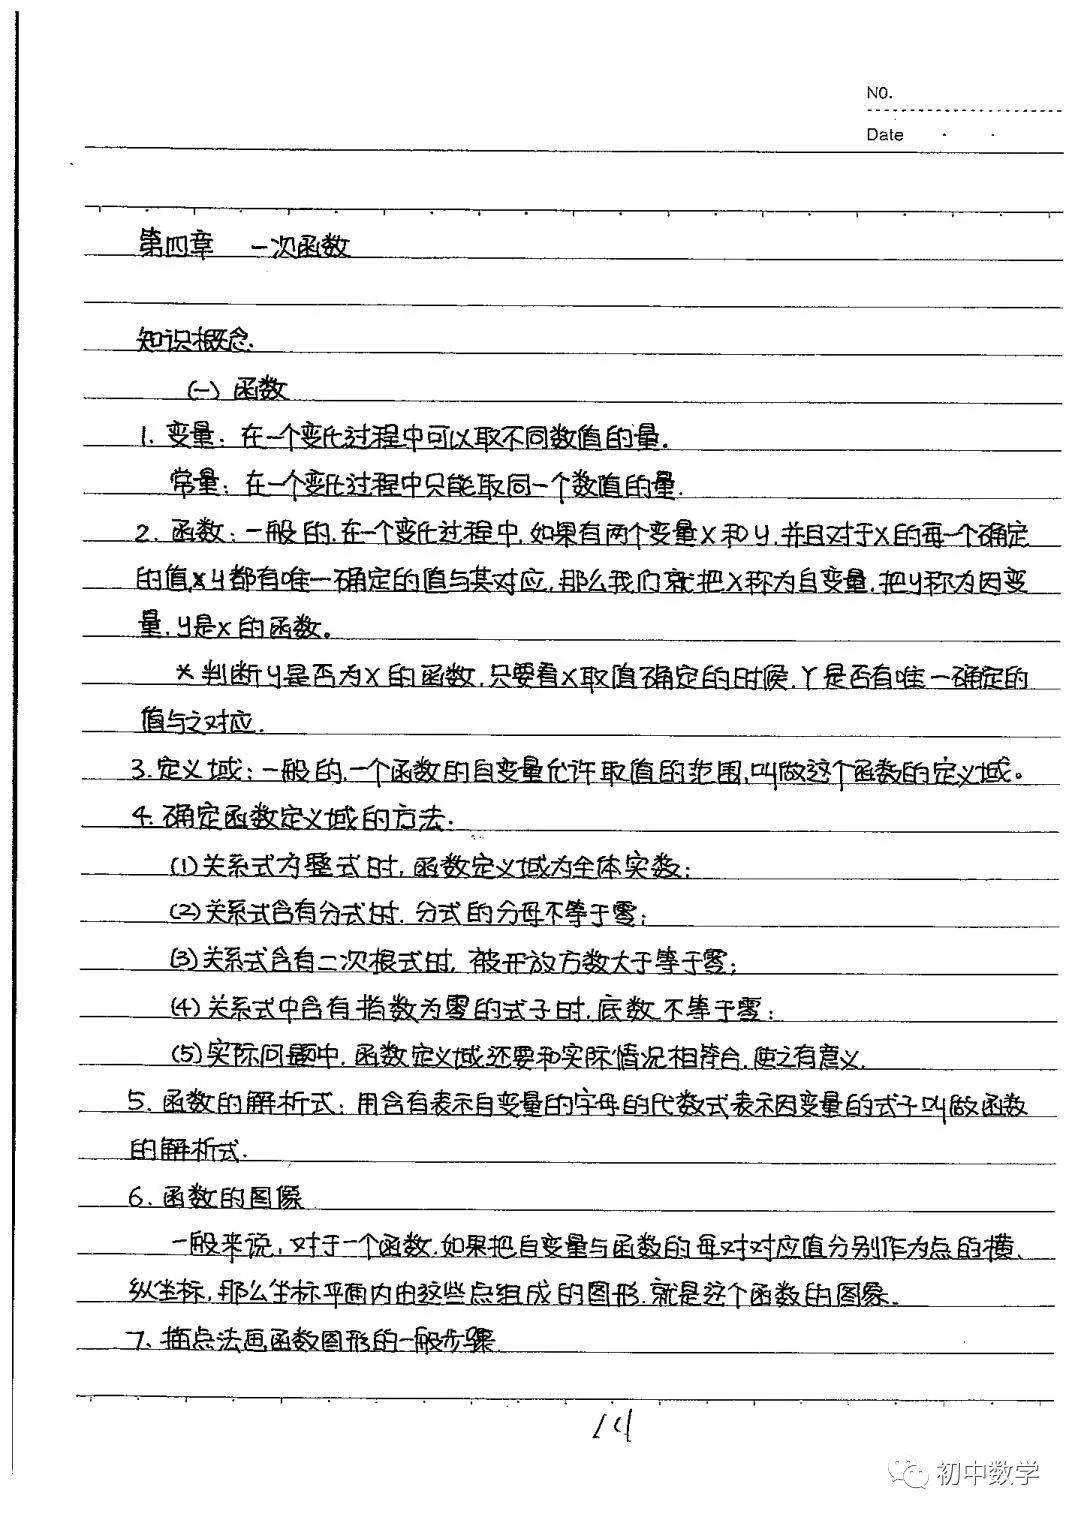 NO.
Date
第四章 一次函数
知识概念.
(一) 函数
1. 变量: 在一个变化过程中可以取不同数值的量.
常量: 在一个变化过程中只能取同一个数值的量.
2. 函数: 一般的, 在一个变化过程中, 如果有两个变量X和y, 并且对于X的每一个确定
的值, y都有唯一确定的值与其对应, 那么我们就把X称为自变量, 把y称为因变
量, y是X的函数。
* 判断y是否为X的函数, 只要看X取值确定的时候, Y是否有唯一确定的
值与之对应.
3. 定义域: 一般的, 一个函数的自变量允许取值的范围, 叫做这个函数的定义域。
4. 确定函数定义域的方法.
(1) 关系式为整式时, 函数定义域为全体实数;
(2) 关系式含有分式时, 分式的分母不等于零;
(3) 关系式含有二次根式时, 被开放方数大于等于零;
(4) 关系式中含有指数为零的式子时, 底数不等于零;
(5) 实际问题中, 函数定义域还要和实际情况相符合, 使之有意义.
5. 函数的解析式: 用含有表示自变量的字母的代数式表示因变量的式子叫做函数
的解析式.
6. 函数的图像
一般来说, 对于一个函数, 如果把自变量与函数的每对对应值分别作为点的横、
纵坐标, 那么坐标平面内由这些点组成的图形, 就是这个函数的图象。
7. 描点法画函数图形的一般步骤
14
初中数学